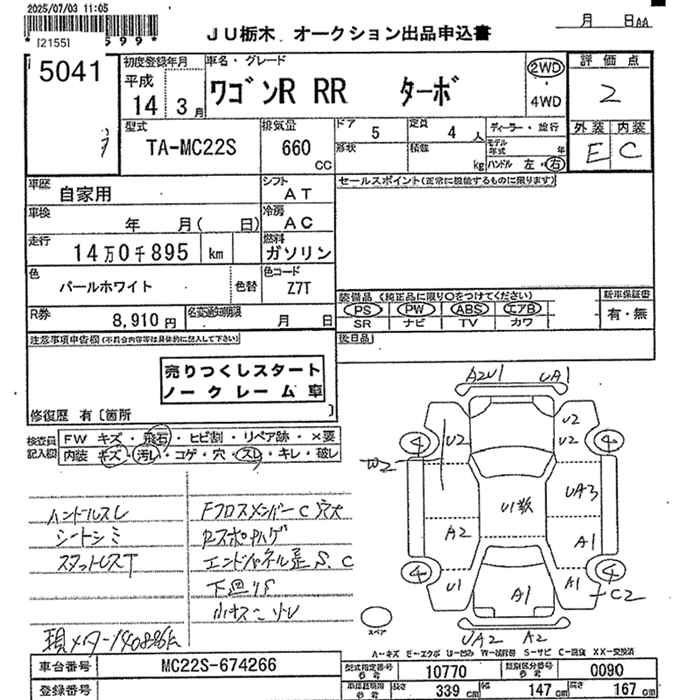 2025/07/03 11:05
月 日AA
* [2155] 599**
JU栃木 オークション出品申込書
5041
初度登録年月
平成
14 3月
車名・グレード
ワゴンR RR ターボ
2WD
4WD
評価点
2
型式
TA-MC22S
排気量
660
CC
ドア
5
定員
4 人
ディーラー・並行
形状
積載
kg
モデル年式
年
ハンドル 左・右
外装 内装
E C
車歴
自家用
シフト
AT
セールスポイント(正常に機能するものに限ります)
車検
年 月( 日)
冷房
AC
走行
14万0千895 km
燃料
ガソリン
色
パールホワイト
色替
色コード
Z7T
装備品 (純正品に限り○をつけてください)
新車保証書
PS PW ABS エアB
有・無
SR ナビ TV カワ
R券
8,910円
名変通知期限
月 日
注意事項申告欄(不具合内容等は具体的に記入して下さい)
後日品
売りつくしスタート
ノークレーム車
修復歴 有〔箇所 〕
検査員記入欄
FW キズ・飛石・ヒビ割・リペア跡・×要
内装 キズ・汚レ・コゲ・穴・スレ・キレ・破レ
ハンドルスレ
シートシミ
スタットレスT
Fクロスメンバー C 穴大
エンドパネル是 S、C
下回りS
現メーター140896k
A2U1 UA1
U2 U2
U2
4 4
W2
U1数
UA3
A2 A1
4 4
U1 A1 A1
C2
UA2 A2
スペア
A-キズ E-エクボ U-凹み W-補修跡 S-サビ C-腐食 XX-交換済
車台番号
MC22S-674266
型式指定番号
10770
類別区分番号
0090
登録番号
長さ
339 cm
幅
147 cm
高さ
167 cm